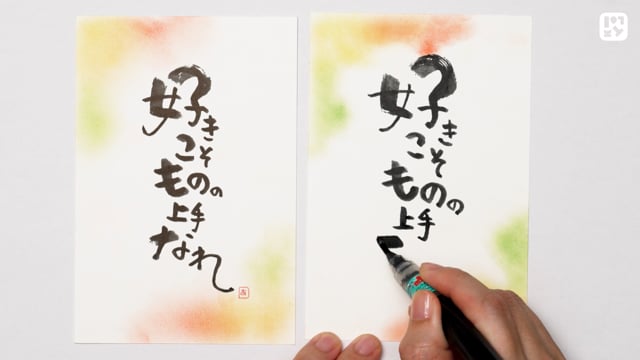 好き
こそ
ものの
上手
なれ
好き
こそ
ものの
上手